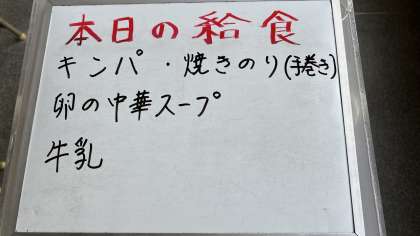 本日の給食
キンパ・焼きのり(手巻き)
卵の中華スープ
牛乳